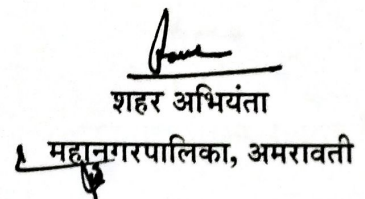 शहर अभियंता
महानगरपालिका, अमरावती